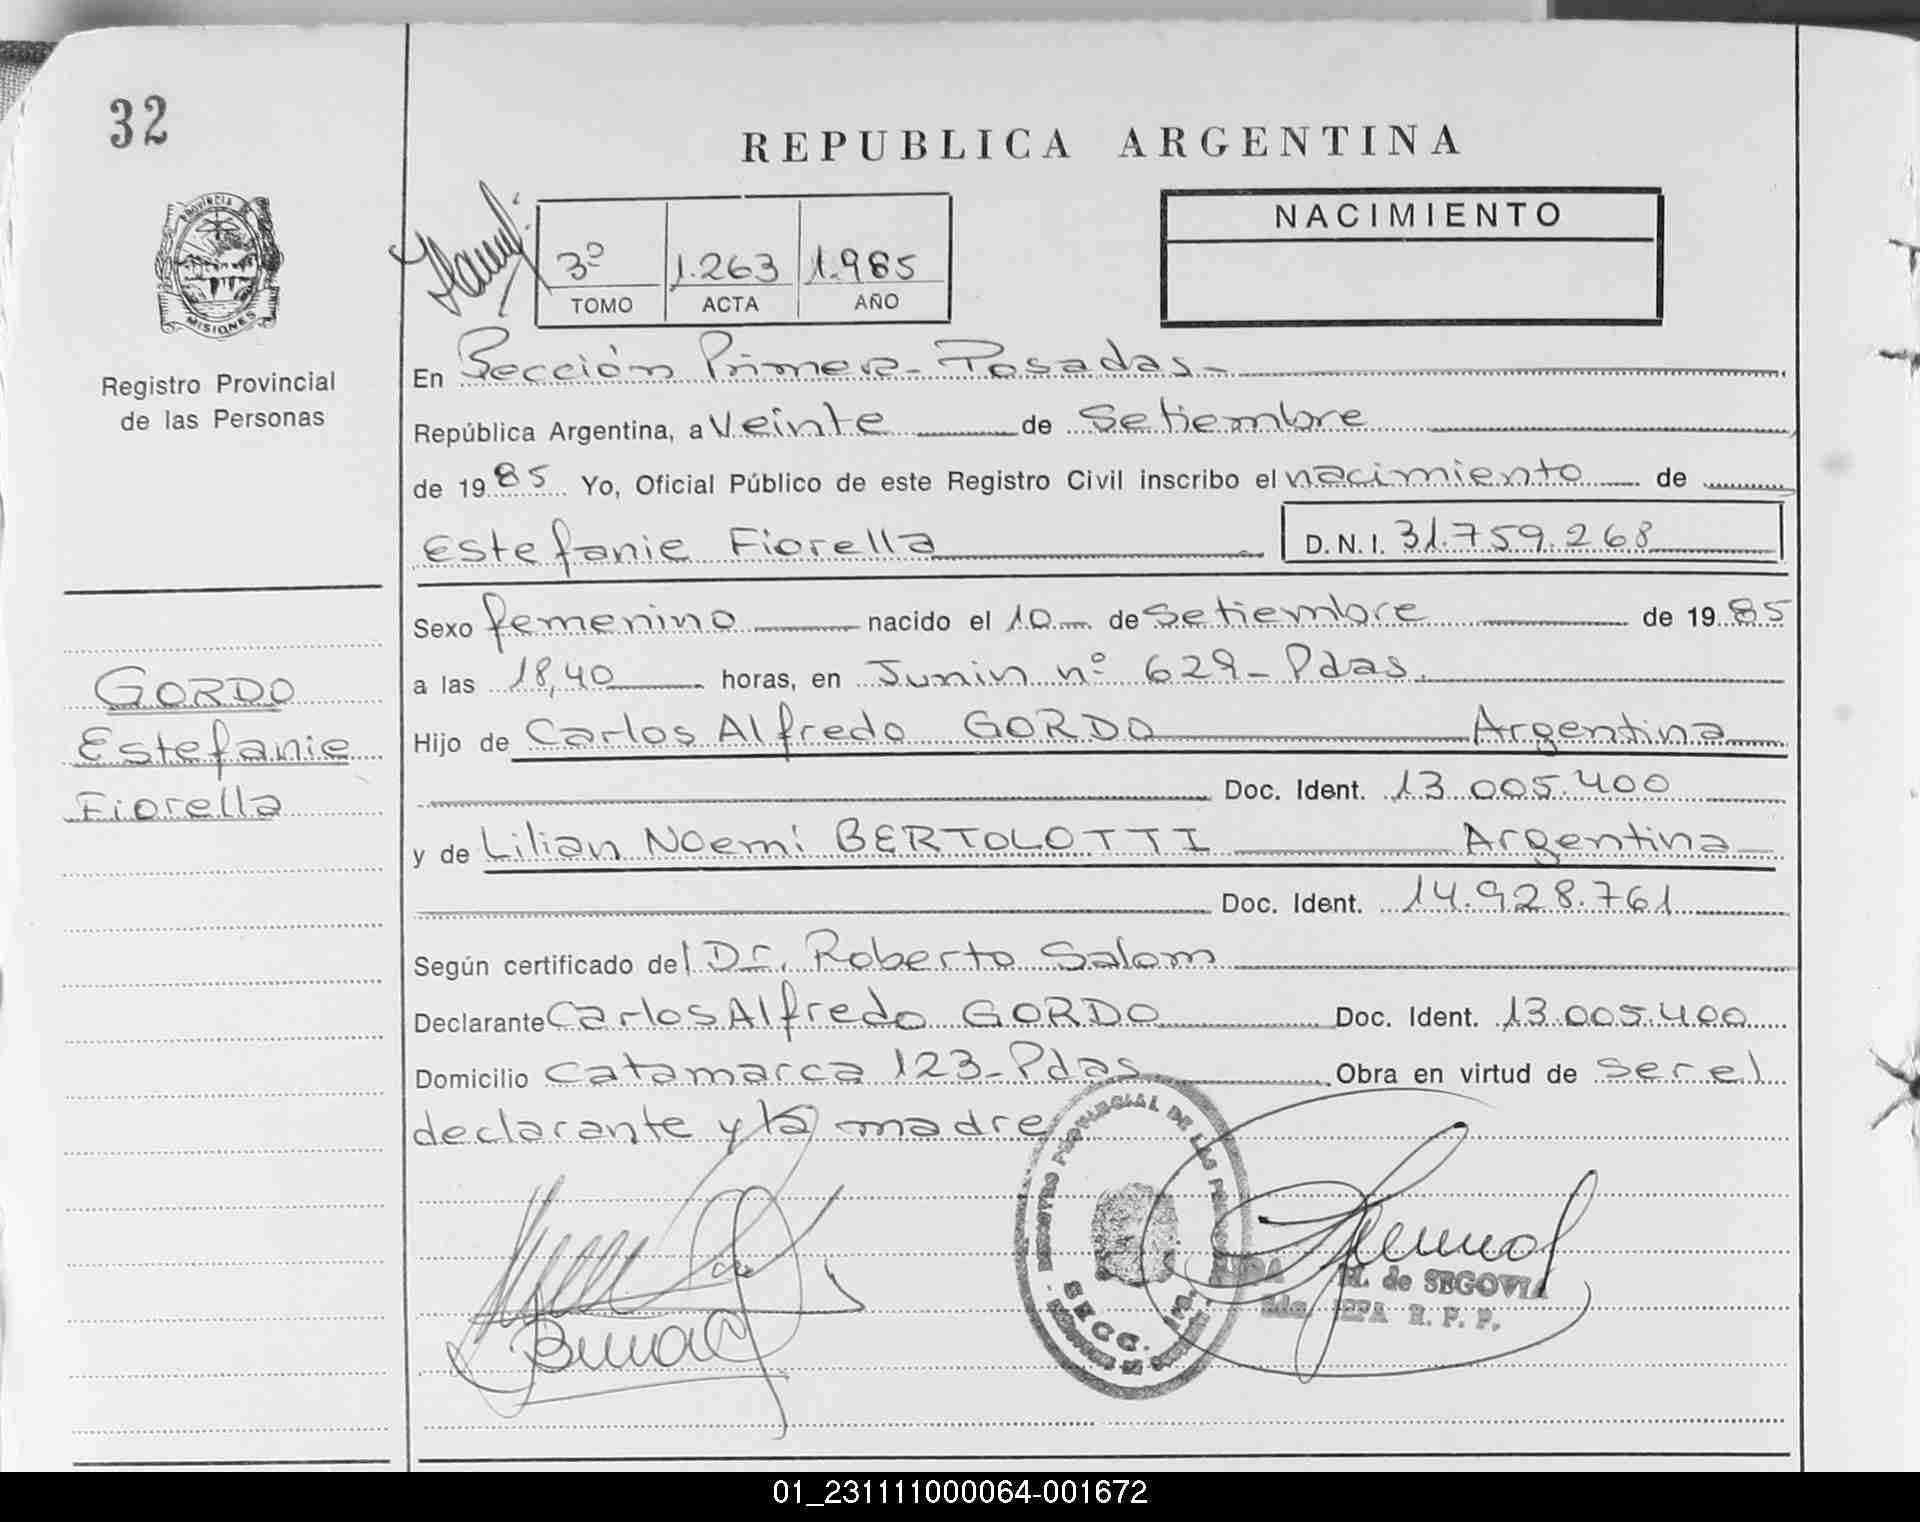 32
REPUBLICA ARGENTINA
PROVINCIA DE
MISIONES
Registro Provincial
de las Personas
3º 1.263 1.985
TOMO ACTA AÑO
NACIMIENTO
En Sección Primera - Posadas -
República Argentina, a Veinte de Setiembre
de 1985 Yo, Oficial Público de este Registro Civil inscribo el nacimiento de
Estefanie Fiorella D.N.I. 31.759.268
Sexo femenino nacido el 10 de Setiembre de 1985
a las 18,40 horas, en Junin nº 629 - Pdas.
Hijo de Carlos Alfredo GORDO Argentina
Doc. Ident. 13.005.400
y de Lilian Noemi BERTOLOTTI Argentina
Doc. Ident. 14.928.761
Según certificado del Dr. Roberto Salom
Declarante Carlos Alfredo GORDO Doc. Ident. 13.005.400
Domicilio Catamarca 123 - Pdas Obra en virtud de ser el
declarante y la madre
GORDO
Estefanie
Fiorella
REGISTRO PROVINCIAL DE LAS PERSONAS
SECC. 1ra.
M. de SEGOVIA
R. P. P.
01_231111000064-001672